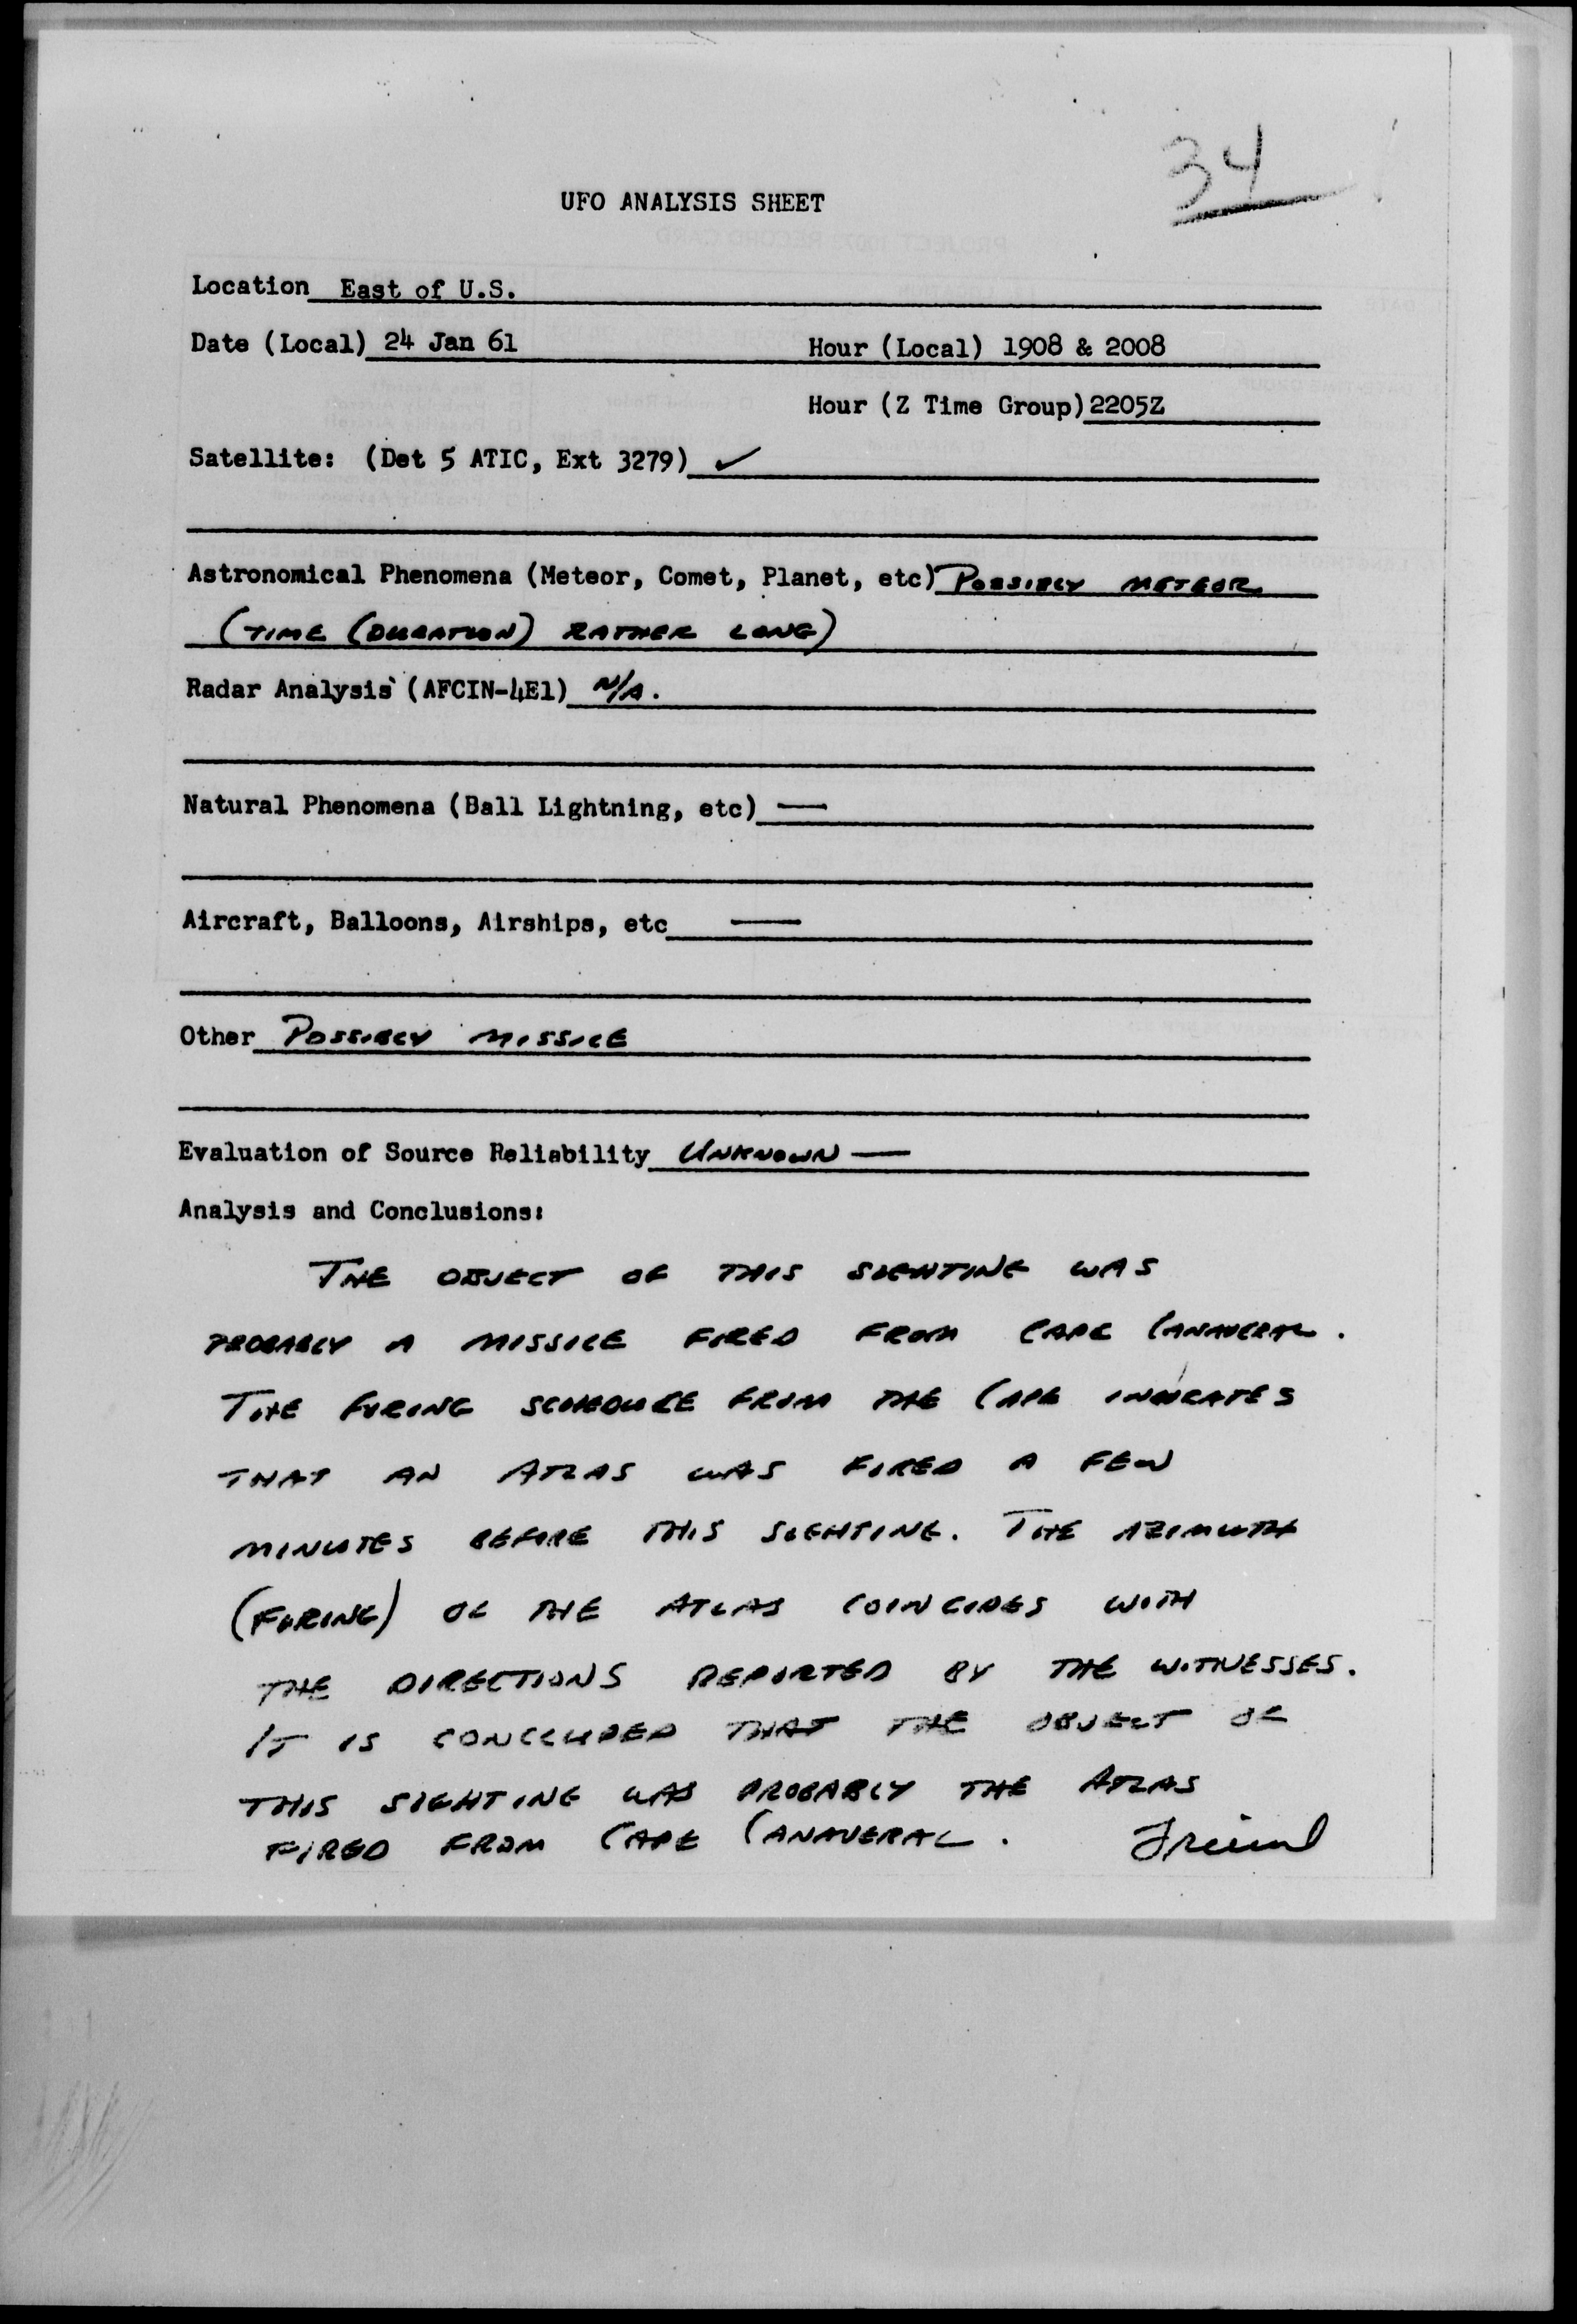 34
UFO ANALYSIS SHEET
Location East of U.S.
Date (Local) 24 Jan 61 Hour (Local) 1908 & 2008
Hour (Z Time Group) 2205Z
Satellite: (Det 5 ATIC, Ext 3279) ✓
Astronomical Phenomena (Meteor, Comet, Planet, etc) POSSIBLY METEOR
(TIME (DURATION) RATHER LONG)
Radar Analysis (AFCIN-4E1) N/A.
Natural Phenomena (Ball Lightning, etc) —
Aircraft, Balloons, Airships, etc —
Other POSSIBLY MISSILE
Evaluation of Source Reliability UNKNOWN —
Analysis and Conclusions:
THE OBJECT OF THIS SIGHTING WAS
PROBABLY A MISSILE FIRED FROM CAPE CANAVERAL.
THE FIRING SCHEDULE FROM THE CAPE INDICATES
THAT AN ATLAS WAS FIRED A FEW
MINUTES BEFORE THIS SIGHTING. THE AZIMUTH
(FIRING) OF THE ATLAS COINCIDES WITH
THE DIRECTIONS REPORTED BY THE WITNESSES.
IT IS CONCLUDED THAT THE OBJECT OF
THIS SIGHTING WAS PROBABLY THE ATLAS
FIRED FROM CAPE CANAVERAL. Friend